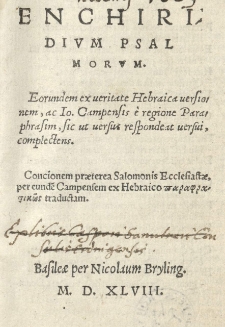 ENCHIRI
DIVM PSAL
MORVM.
Eorundem ex veritate Hebraica versio
nem, ac Io. Campensis è regione Para
phrasim, sic ut versus respondeat versui,
complectens.
Concionem præterea Salomonis Ecclesiastæ,
per eundē Campensem ex Hebraico παραφρα
ςικῶς traductam.
Ex libris
Basileæ per Nicolaum Bryling.
M. D. XLVIII.